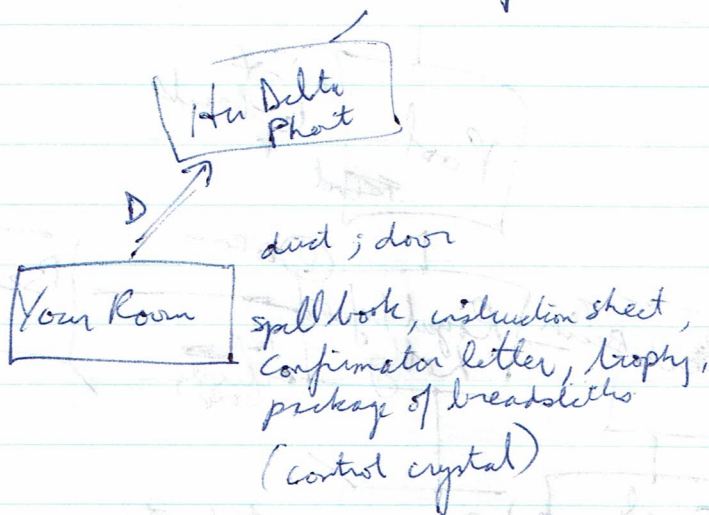 Hu Delta
Phart
D
duct ; door
Your Room
spell book, instruction sheet,
confirmator letter, trophy,
package of breadsticks
(control crystal)